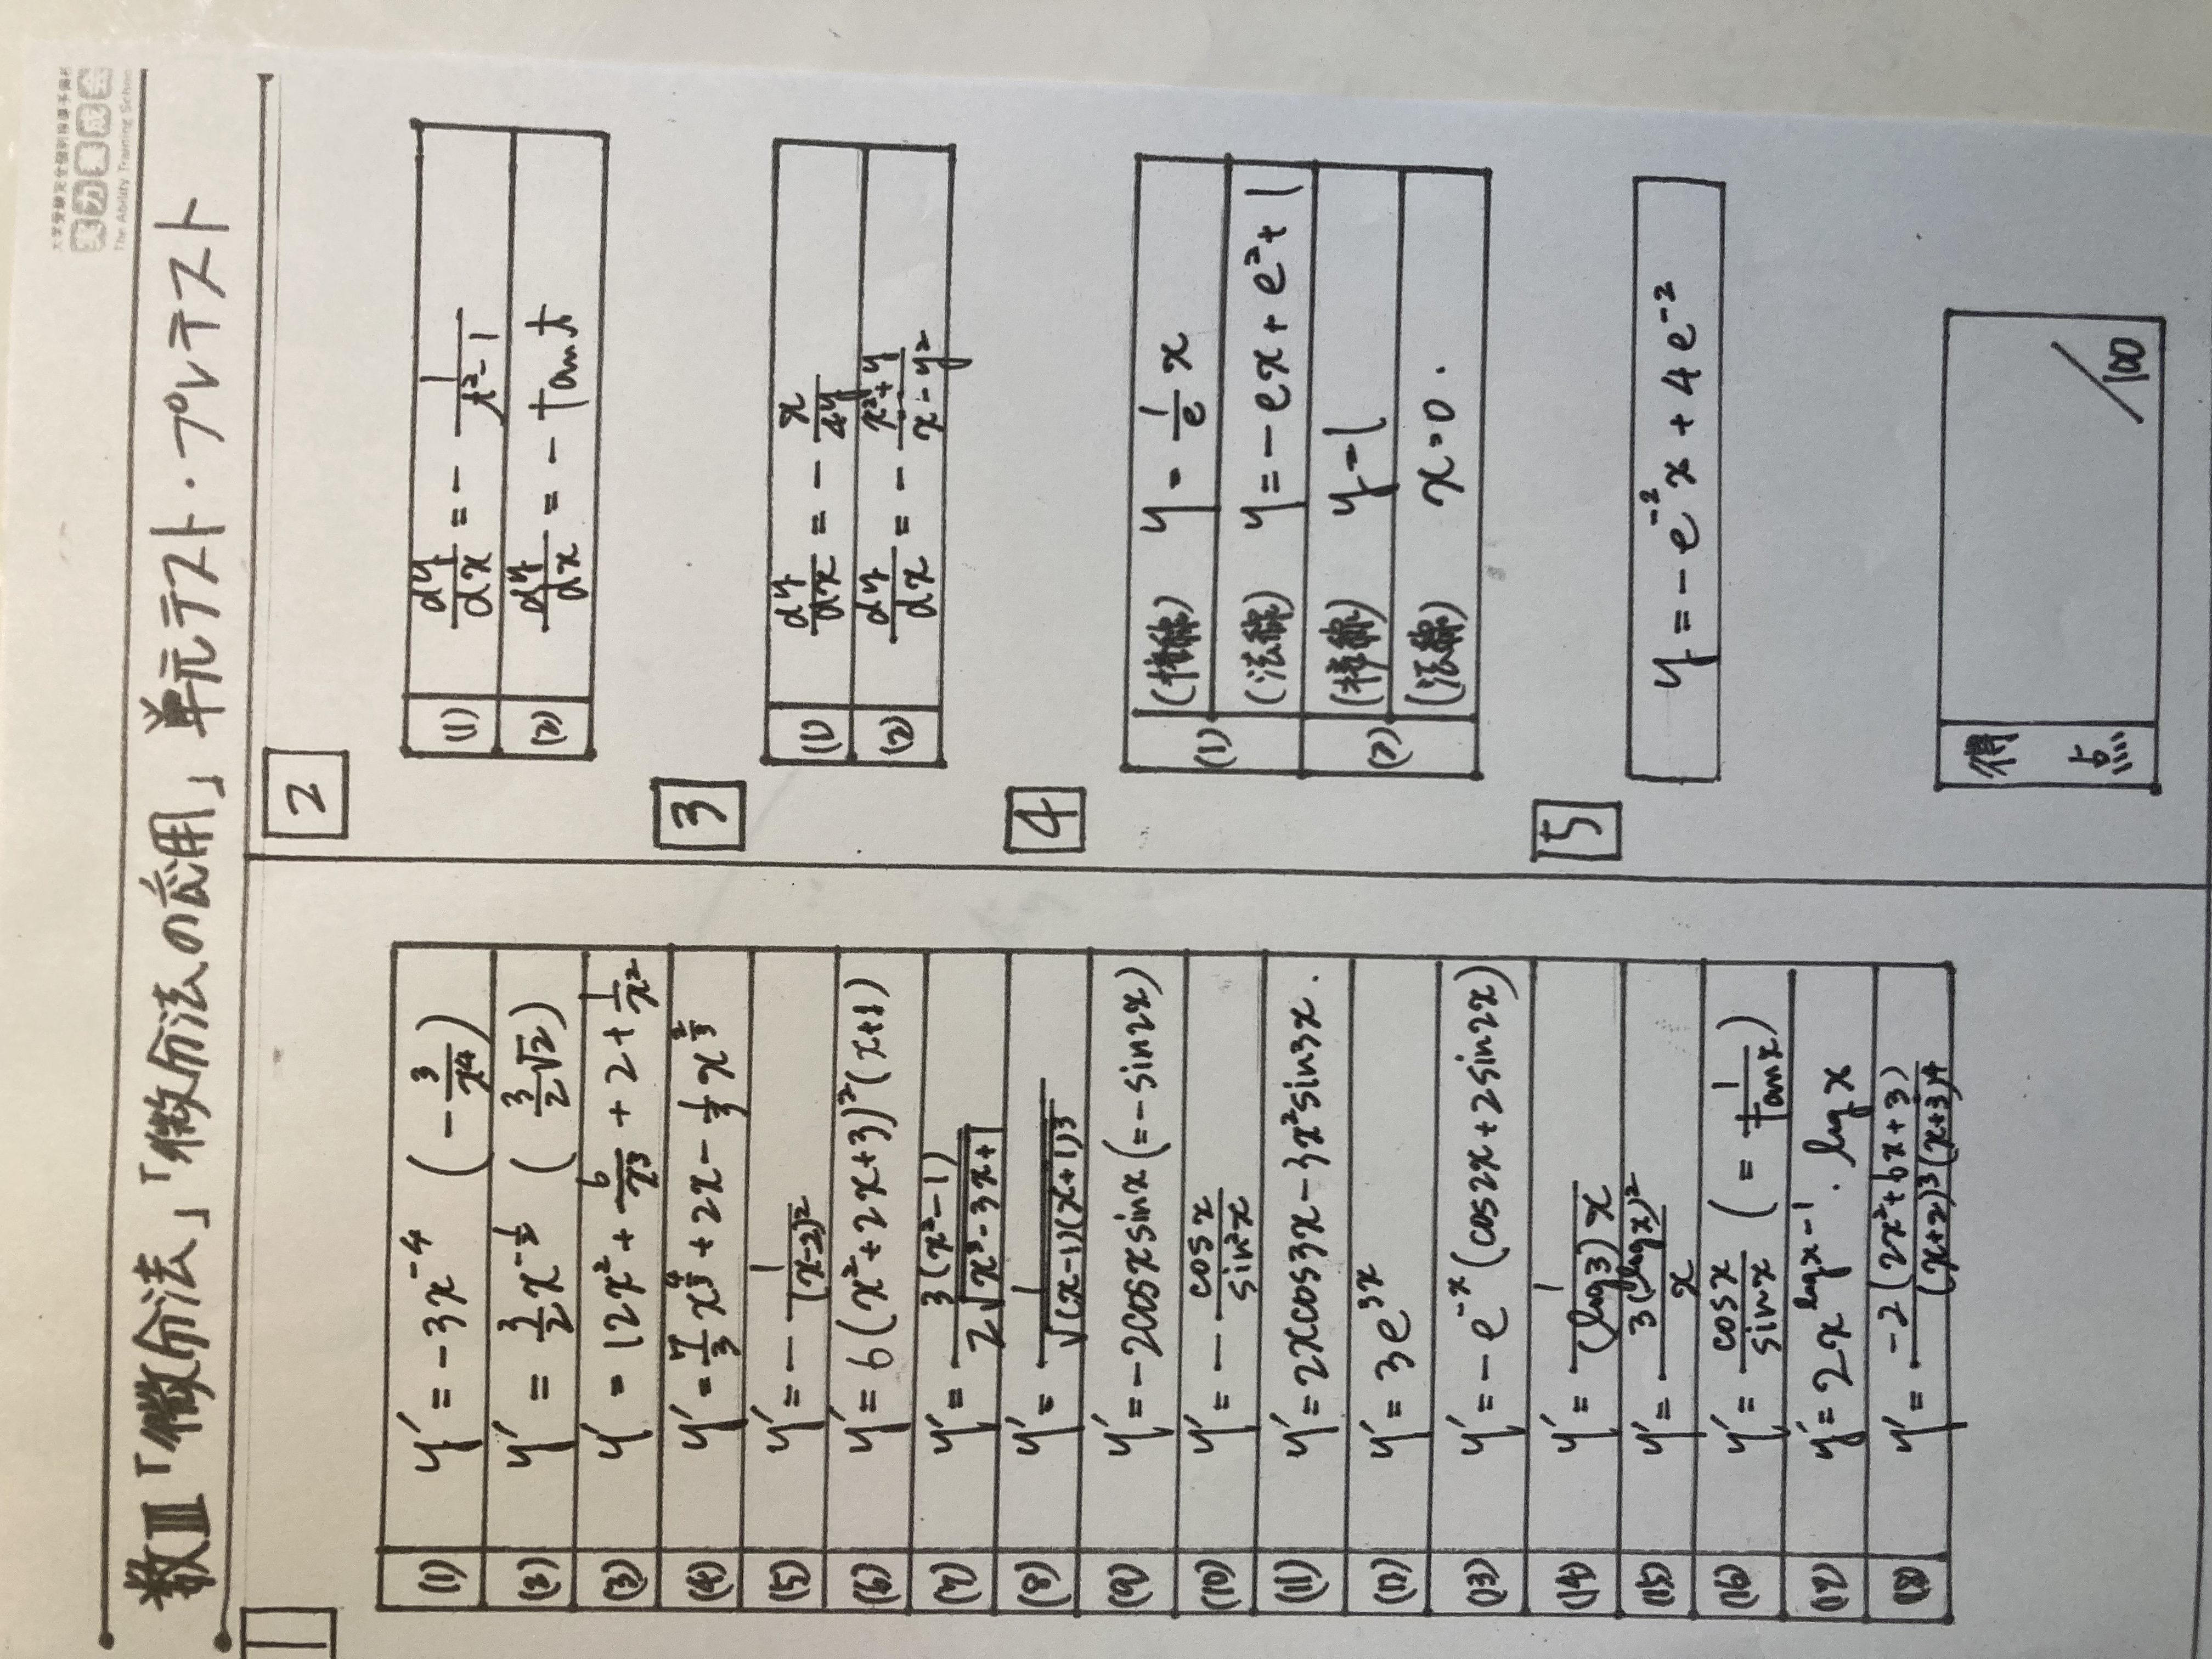 大学受験完全個別指導予備校
実力養成会
The Ability Training School
数Ⅲ「微分法」「微分法の応用」単元テスト・プレテスト
1
(1) y' = -3x^{-4} (-\frac{3}{x^4})
(2) y' = \frac{3}{2}x^{-\frac{1}{2}} (\frac{3}{2}\sqrt{2})
(3) y' = 12x^2 + \frac{6}{x^3} + 2 + \frac{1}{x^2}
(4) y' = \frac{7}{3}x^{\frac{4}{3}} + 2x - \frac{1}{3}x^{\frac{2}{3}}
(5) y' = -\frac{1}{(x-2)^2}
(6) y' = 6(x^2+2x+3)^2(x+1)
(7) y' = \frac{3(x^2-1)}{2\sqrt{x^3-3x+1}}
(8) y' = \frac{1}{\sqrt{(x-1)(x+1)^3}}
(9) y' = -2cosxsinx (= -sin2x)
(10) y' = -\frac{cosx}{sin^2x}
(11) y' = 2xcos3x - 3x^2sin3x.
(12) y' = 3e^{3x}
(13) y' = -e^{-x}(cos2x+2sin2x)
(14) y' = \frac{1}{(log3)x}
(15) y' = \frac{3(logx)^2}{x}
(16) y' = \frac{cosx}{sinx} (= \frac{1}{tanx})
(17) y' = 2x^{logx-1}・logx
(18) y' = \frac{-2(2x^2+6x+3)}{(x+2)^3(x+3)^4}
2
(1) \frac{dy}{dx} = -\frac{1}{t^2-1}
(2) \frac{dy}{dx} = -tant
3
(1) \frac{dy}{dx} = -\frac{x}{4y}
(2) \frac{dy}{dx} = -\frac{x^2+y}{x-y^2}
4
(1) (接線) y = \frac{1}{e}x
(法線) y = -ex+e^2+1
(2) (接線) y=1
(法線) x=0.
5
y = -e^{-2}x+4e^{-2}
得点 /100